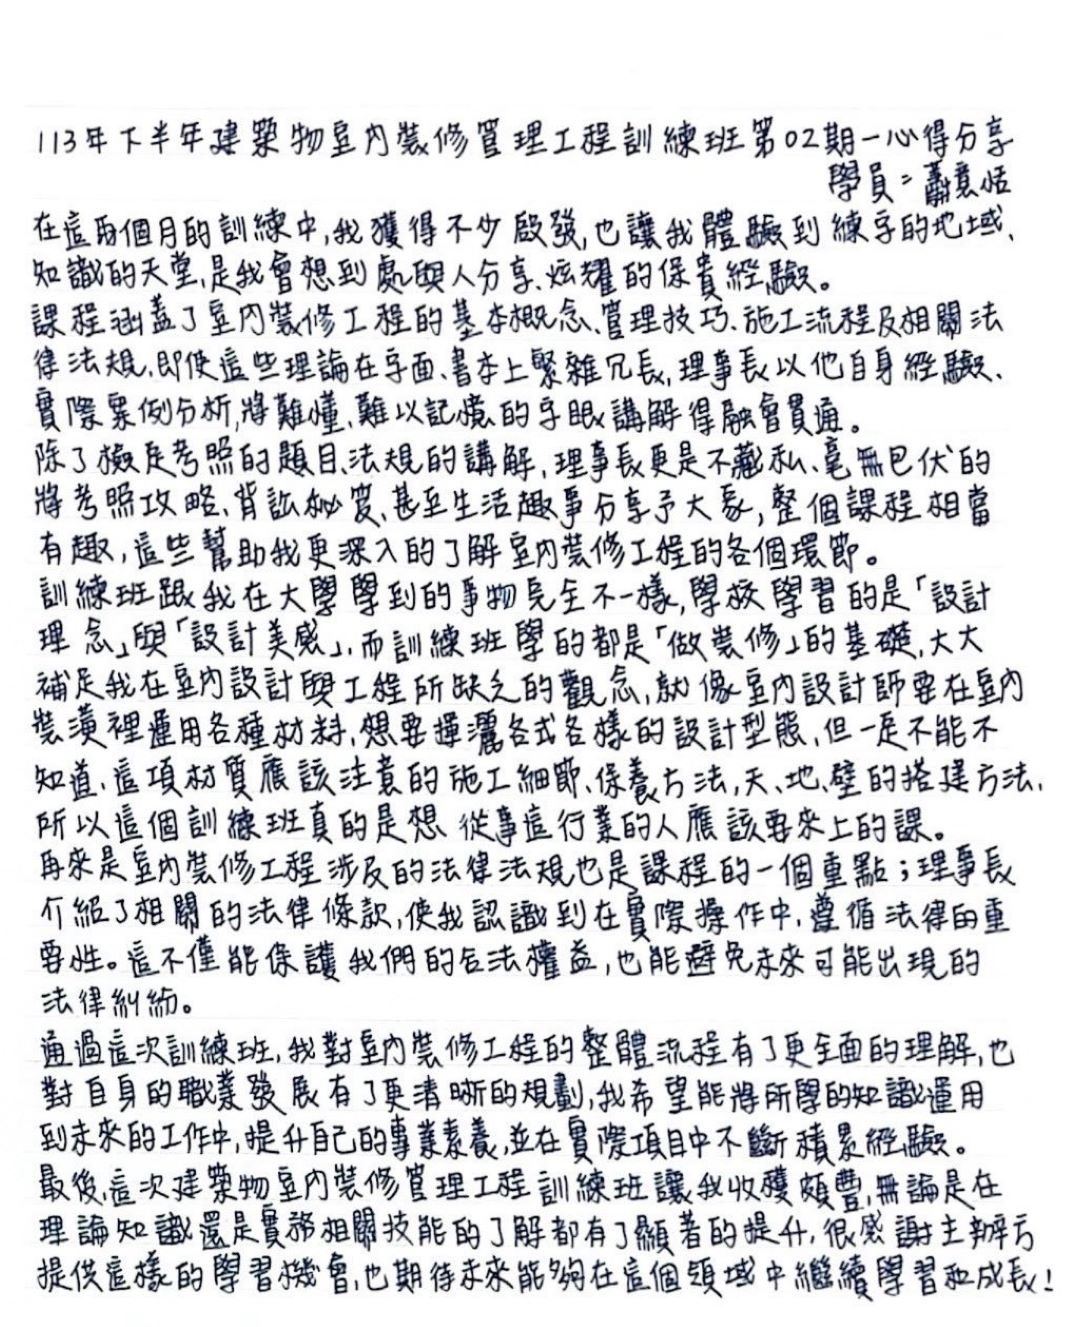 113年下半年建築物室內裝修管理工程訓練班第02期一心得分享
學員：蕭意恬
在這兩個月的訓練中,我獲得不少啟發,也讓我體驗到練字的地域、
知識的天堂,是我會想到處與人分享、炫耀的保貴經驗。
課程涵蓋了室內裝修工程的基本概念、管理技巧、施工流程及相關法
律法規,即使這些理論在字面、書本上繁雜冗長,理事長以他自身經驗、
實際案例分析,將難懂、難以記憶的字眼講解得融會貫通。
除了檢定考照的題目、法規的講解,理事長更是不藏私、毫無包伏的
將考照攻略、背訟秘笈、甚至生活趣事分享予大家,整個課程相當
有趣,這些幫助我更深入的了解室內裝修工程的各個環節。
訓練班跟我在大學學到的事物完全不一樣,學校學習的是「設計
理念」與「設計美感」,而訓練班學的都是「做裝修」的基礎,大大
補足我在室內設計與工程所缺乏的觀念,就像室內設計師要在室內
裝潢裡運用各種材料,想要揮灑各式各樣的設計型態,但一定不能不
知道,這項材質應該注意的施工細節、保養方法,天、地、壁的搭建方法、
所以這個訓練班真的是想從事這行業的人應該要來上的課。
再來是室內裝修工程涉及的法律法規也是課程的一個重點；理事長
介紹了相關的法律條款,使我認識到在實際操作中,遵循法律的重
要性。這不僅能保護我們的合法權益,也能避免未來可能出現的
法律糾紛。
通過這次訓練班,我對室內裝修工程的整體流程有了更全面的理解,也
對自身的職業發展有了更清晰的規劃,我希望能將所學的知識運用
到未來的工作中,提升自己的專業素養,並在實際項目中不斷積累經驗。
最後,這次建築物室內裝修管理工程訓練班讓我收穫頗豐,無論是在
理論知識還是實務相關技能的了解都有了顯著的提升,很感謝主辦方
提供這樣的學習機會,也期待未來能夠在這個領域中繼續學習和成長!